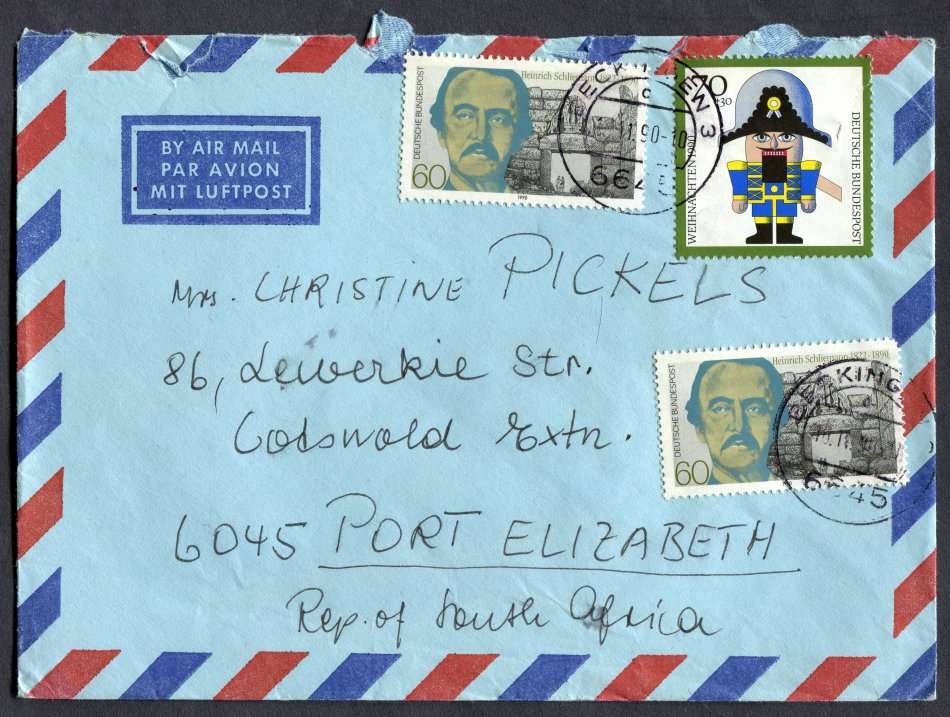 BY AIR MAIL
PAR AVION
MIT LUFTPOST
DEUTSCHE BUNDESPOST
Heinrich Schliemann
60
1990
70
+30
WEIHNACHTEN 1990
DEUTSCHE BUNDESPOST
Mrs. CHRISTINE PICKELS
86, Lewerkie Str.
Codswold Extn.
6045 PORT ELIZABETH
Rep. of South Africa
DEUTSCHE BUNDESPOST
Heinrich Schliemann 1822-1890
60